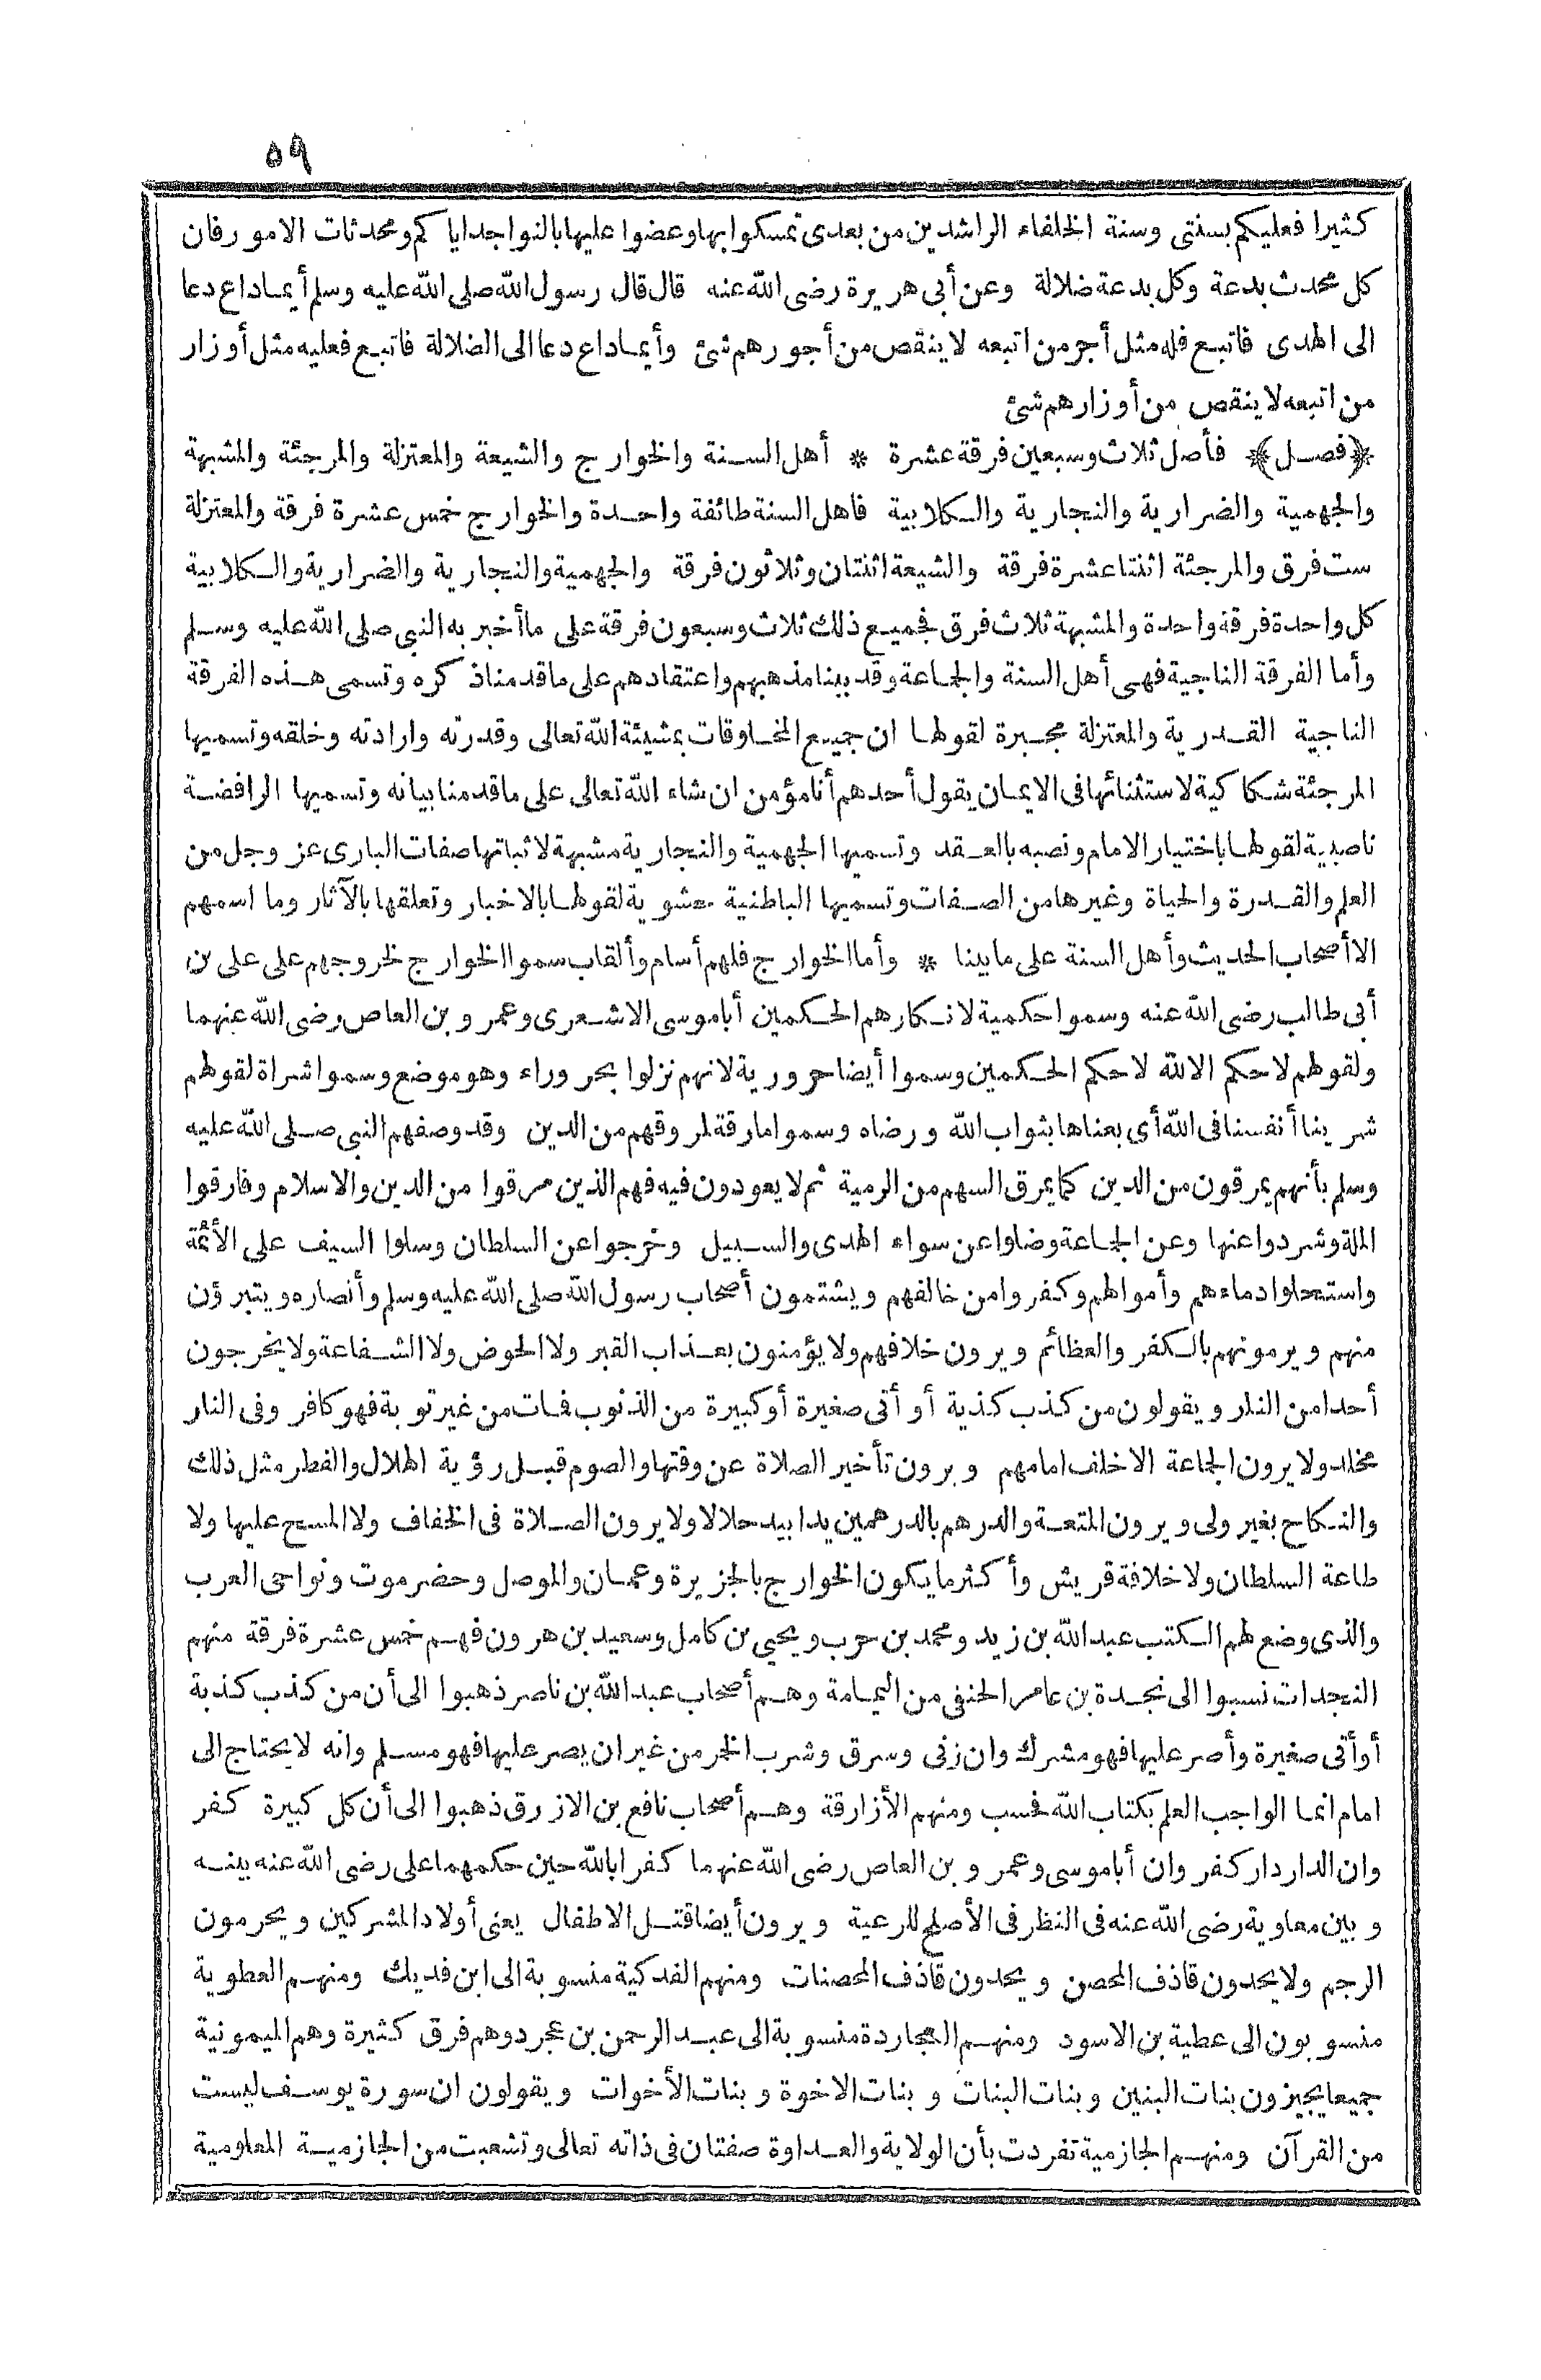 ٥٩
كثيرا فعليكم بسنتى وسنة الخلفاء الراشدين من بعدى تمسكوا بها وعضوا عليها بالنواجذ ايا كم ومحدثات الامور فان
كل محدث بدعة وكل بدعة ضلالة وعن أبى هريرة رضى الله عنه قال قال رسول الله صلى الله عليه وسلم أيما داع دعا
الى الهدى فاتبع فله مثل أجر من اتبعه لا ينقص من أجورهم شئ وأيما داع دعا الى الضلالة فاتبع فعليه مثل أوزار
من اتبعه لا ينقص من أوزارهم شئ
﴿فصل﴾ فأصل ثلاث وسبعين فرقة عشرة * أهل السنة والخوارج والشيعة والمعتزلة والمرجئة والمشبهة
والجهمية والضرارية والنجارية والكلابية فاهل السنة طائفة واحدة والخوارج خمس عشرة فرقة والمعتزلة
ست فرق والمرجئة اثنتا عشرة فرقة والشيعة اثنتان وثلاثون فرقة والجهمية والنجارية والضرارية والكلابية
كل واحدة فرقة واحدة والمشبهة ثلاث فرق فجميع ذلك ثلاث وسبعون فرقة على ما أخبر به النبى صلى الله عليه وسلم
وأما الفرقة الناجية فهى أهل السنة والجماعة وقد بينا مذهبهم واعتقادهم على ما قدمنا ذكره وتسمى هذه الفرقة
الناجية القدرية والمعتزلة مجبرة لقولها ان جميع المخلوقات بمشيئة الله تعالى وقدرته وارادته وخلقه وتسميها
المرجئة شكاكية لاستثنائها فى الايمان يقول أحدهم أنا مؤمن ان شاء الله تعالى على ما قدمنا بيانه وتسميها الرافضة
ناصبية لقولها باختيار الامام ونصبه بالعقد وتسميها الجهمية والنجارية مشبهة لاثباتها صفات البارى عز وجل من
العلم والقدرة والحياة وغيرها من الصفات وتسميها الباطنية حشوية لقولها بالاخبار وتعلقها بالآثار وما اسمهم
الا أصحاب الحديث وأهل السنة على ما بينا * وأما الخوارج فلهم أسام وألقاب سموا الخوارج لخروجهم على على بن
أبى طالب رضى الله عنه وسموا حكمية لانكارهم الحكمين أبا موسى الاشعرى وعمرو بن العاص رضى الله عنهما
ولقولهم لا حكم الا لله لا حكم الحكمين وسموا أيضا حرورية لانهم نزلوا بحروراء وهو موضع وسموا شراة لقولهم
شرينا أنفسنا فى الله أى بعناها بثواب الله ورضاه وسموا مارقة لمروقهم من الدين وقد وصفهم النبى صلى الله عليه
وسلم بأنهم يمرقون من الدين كما يمرق السهم من الرمية ثم لا يعودون فيه فهم الذين مرقوا من الدين والاسلام وفارقوا
الملة وشردوا عنها وعن الجماعة وضلوا عن سواء الهدى والسبيل وخرجوا عن السلطان وسلوا السيف على الأئمة
واستحلوا دماءهم وأموالهم وكفروا من خالفهم ويشتمون أصحاب رسول الله صلى الله عليه وسلم وأنصاره ويتبرؤن
منهم ويرمونهم بالكفر والعظائم ويرون خلافهم ولا يؤمنون بعذاب القبر ولا الحوض ولا الشفاعة ولا يخرجون
أحدا من النار ويقولون من كذب كذبة أو أتى صغيرة أو كبيرة من الذنوب فمات من غير توبة فهو كافر وفى النار
مخلد ولا يرون الجماعة الا خلف امامهم ويرون تأخير الصلاة عن وقتها والصوم قبل رؤية الهلال والفطر مثل ذلك
والنكاح بغير ولى ويرون المتعة والدرهم بالدرهمين يدا بيد حلالا ولا يرون الصلاة فى الخفاف ولا المسح عليها ولا
طاعة السلطان ولا خلافة قريش وأكثر ما يكون الخوارج بالجزيرة وعمان والموصل وحضرموت ونواحى العرب
والذى وضع لهم الكتب عبد الله بن زيد ومحمد بن حرب ويحيى بن كامل وسعيد بن هرون فهم خمس عشرة فرقة منهم
النجدات نسبوا الى نجدة بن عامر الحنفى من اليمامة وهم أصحاب عبد الله بن ناصر ذهبوا الى أن من كذب كذبة
أو أتى صغيرة وأصر عليها فهو مشرك وان زنى وسرق وشرب الخمر من غير ان يصر عليها فهو مسلم وانه لا يحتاج الى
امام انما الواجب العلم بكتاب الله فحسب ومنهم الأزارقة وهم أصحاب نافع بن الازرق ذهبوا الى أن كل كبيرة كفر
وان الدار دار كفر وان أبا موسى وعمرو بن العاص رضى الله عنهما كفرا بالله حين حكمهما على رضى الله عنه بينه
وبين معاوية رضى الله عنه فى النظر فى الأصلح للرعية ويرون أيضا قتل الاطفال يعنى أولاد المشركين ويحرمون
الرجم ولا يحدون قاذف المحصن ويحدون قاذف المحصنات ومنهم الفدكية منسوبة الى ابن فديك ومنهم العطوية
منسوبون الى عطية بن الاسود ومنهم العجاردة منسوبة الى عبد الرحمن بن عجرد وهم فرق كثيرة وهم الميمونية
جميعا يجيزون بنات البنين وبنات البنات وبنات الاخوة وبنات الأخوات ويقولون ان سورة يوسف ليست
من القرآن ومنهم الجازمية تفردت بأن الولاية والعداوة صفتان فى ذاته تعالى وتشعبت من الجازمية المعلومية